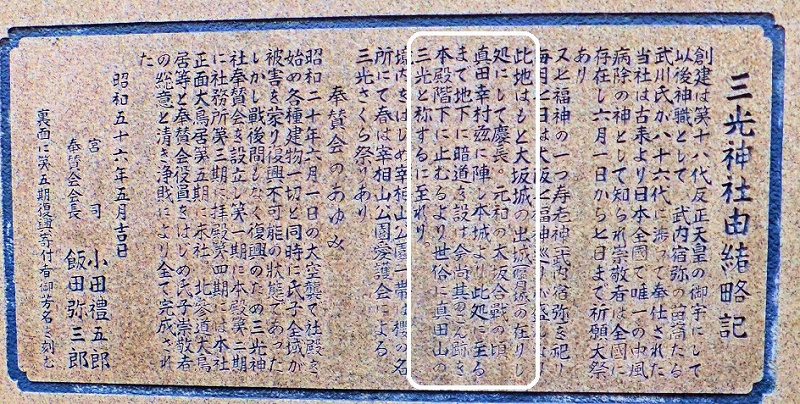 三光神社由緒略記
創建は第十八代反正天皇の御宇にして
以後神職として 武内宿弥の苗裔たる
武川氏が八十六代に渉って奉仕された
当社は古来より日本全国で唯一の中風
病除の神として知られ崇敬者は全国に
存在し六月一日から七日まで祈願大祭
あり
又七福神の一つ寿老神(武内宿弥を祀り
毎月七日は大阪七福神
此地はもと大坂城の出城 の在りし
処にして慶長。元和の大坂合戦の頃
真田幸村茲に陣し本城より此処に至る
まで地下に暗道を設け今尚其の 跡を
本殿階下に止むるより世俗に真田山の
三光と称するに至れり。
境内をはじめ宰相山公園一帯は櫻の名
所にて春は宰相山公園愛護会による
三光さくら祭りあり
奉賛会のあゆみ
昭和二十年六月一日の大空襲で社殿を
始め各種建物一切と同時に氏子全域が
被害を蒙り復興不可能の状態であった
しかし戦後間もなく復興のため三光神
社奉賛会を設立し第一期に本殿第二期
に社務所第三期に拝殿第四期には本社
正面大鳥居第五期に末社、北参道大鳥
居等と奉賛会役員をはじめ氏子崇敬者
の総意と清き浄財により全て完成され
た
昭和五十六年五月吉日
宮司 小田禮五郎
奉賛会会長 飯田弥三郎
裏面に第五期復興寄付者御芳名を刻む